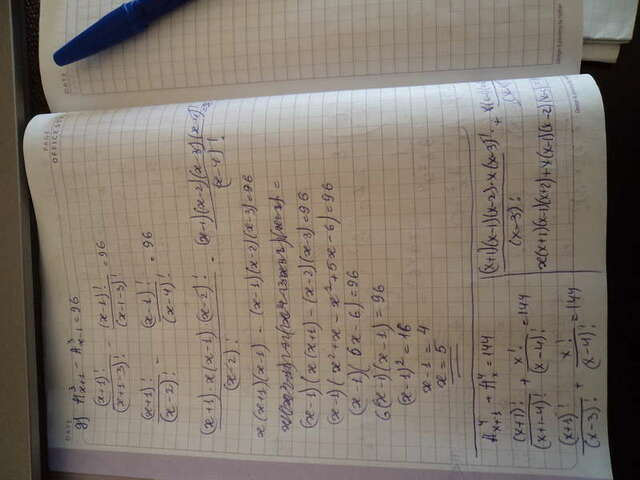 DATE
g) A³ₓ₊₁ - A³ₓ₋₁ = 96
(x+1)! / (x+1-3)! - (x-1)! / (x-1-3)! = 96
(x+1)! / (x-2)! - (x-1)! / (x-4)! = 96
(x+1)·x(x-1)(x-2)! / (x-2)! - (x-1)(x-2)(x-3)(x-4)! / (x-4)!
x(x+1)(x-1) - (x-1)(x-2)(x-3)=96
(x-1)(x(x+1) - (x-2)(x-3)=96
(x-1)(x²+x-x²+5x-6)=96
(x-1)(6x-6)=96
6(x-1)(x-1)=96
(x-1)²=16
x-1=4
x=5
A⁴ₓ₊₁ + A⁴ₓ=144
(x+1)! / (x+1-4)! + x! / (x-4)! = 144
(x+1)! / (x-3)! + x! / (x-4)! = 144
(x+1)(x-1)(x-2)·x(x-3)! / (x-3)! +